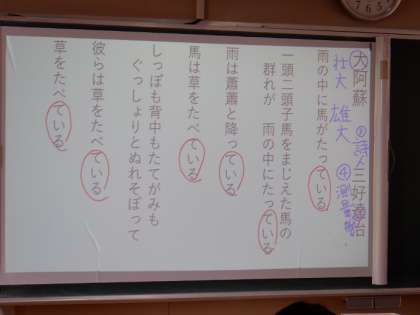 大阿蘇 三好達治
壮大 雄大
雨の中に馬がたっている
一頭二頭子馬をまじえた馬の
群れが 雨の中にたっている
雨は蕭蕭と降っている
馬は草をたべている
しっぽも背中もたてがみも
ぐっしょりとぬれそぼって
彼らは草をたべている
草をたべている